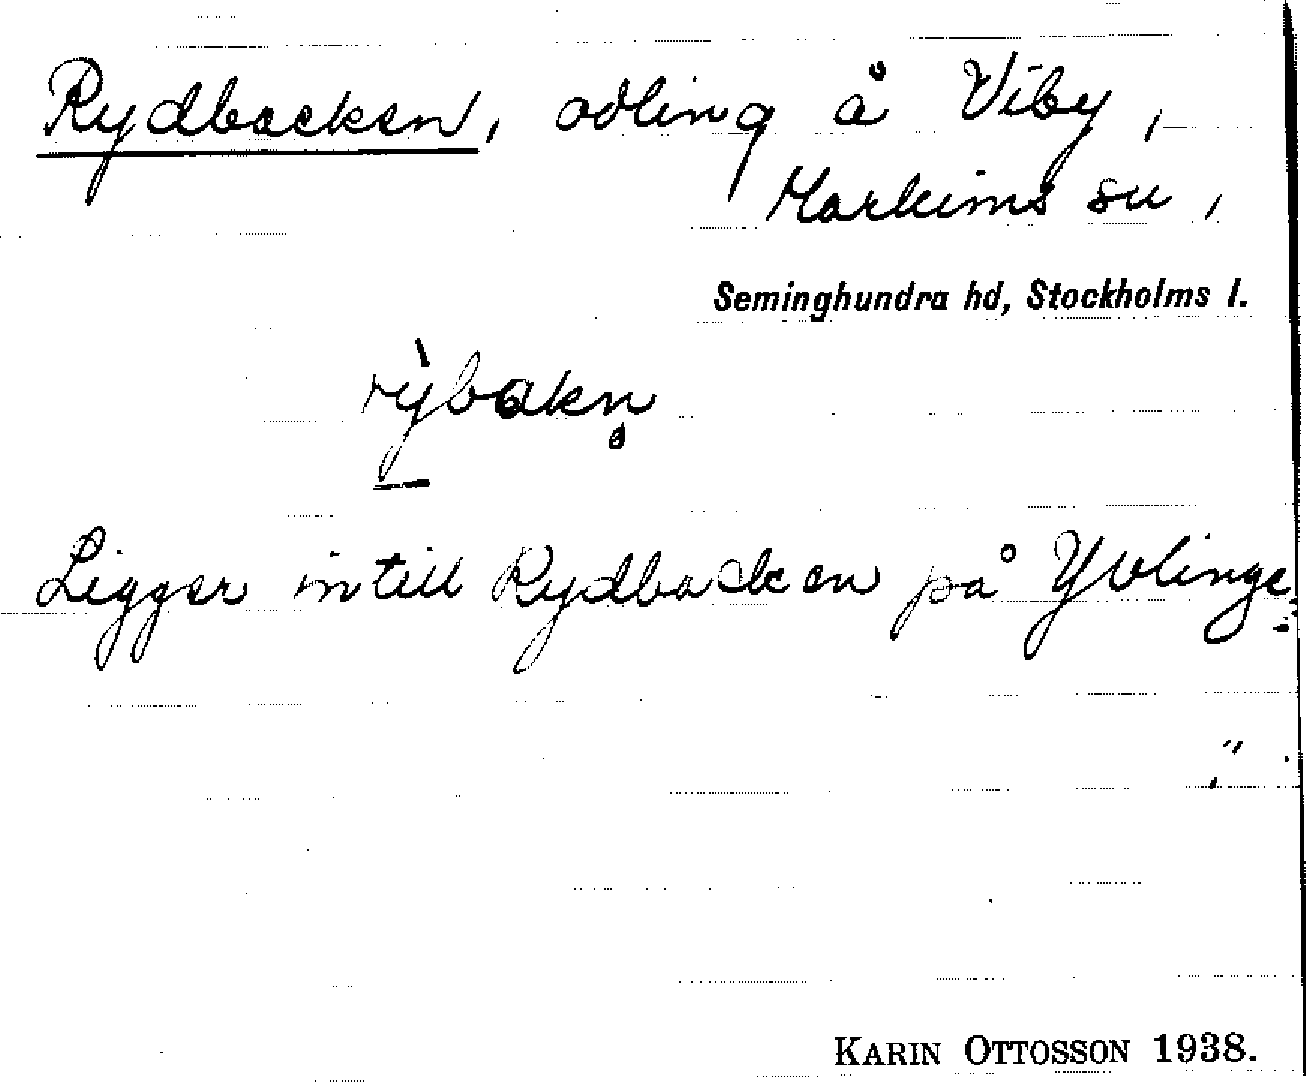 Rydbacken, odling å Viby,
Markims sn,
Seminghundra hd, Stockholms l.
rỳbakn̥
Ligger intill Rydbacken på Yvlinge
KARIN OTTOSSON 1938.